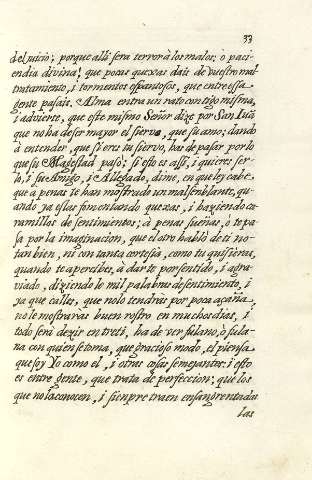 33
del juicio; porque alli sera terror à los malos; o paci-
endia divina! que pocas quexas dais de vuestro mal
tratamiento, i tormentos espantosos, que entre essa
gente pasais. Alma entra un rato contigo misma,
i advierte, que este mismo Señor dize por San Luā
que no ha de ser mayor el siervo, que su amo; dando
à entender, que si eres tu siervo, has de pasar por lo
que su Magestad pasò; si esto es assi, i quieres ser-
lo, i su Amigo, i Allegado, dime, en que ley cabe
que a penas te han mostrado un mal semblante, qu-
ando ya estas fomentando quexas, i haziendo ca-
ramillos de sentimientos; à penas sueñas, o te pa-
sa por la imaginacion, que el otro hablò de ti no
tan bien, ni con tanta cortesia, como tu quisieras,
quando te apercibes, à darte por sentido, i agra-
viado, diziendo lo mil palabras de sentimiento, i
ya que calles, que no lo tendràs por poca açaña,
no le mostraràs buen rostro en muchos dias, i
todo serà dezir en tre ti, ha de ver fulano, ò fula-
na con quien se toma, que gracioso modo, el piensa
que soy Yo como el, i otras cosas semejantes: i esto
es entre gente, que trata de perfeccion; que los
que no la conocen, i sienpre traen ensangrentadas
las